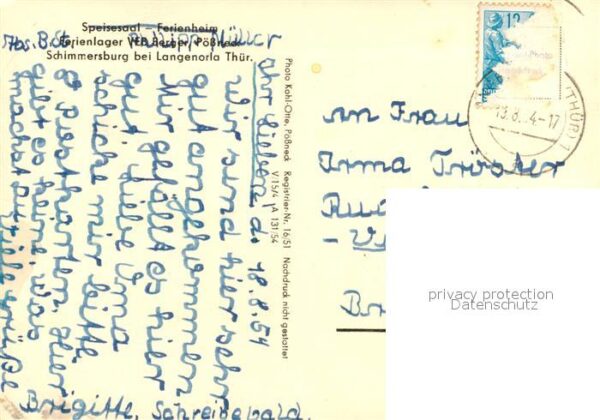 Speisesaal - Ferienheim
Ferienlager VEB Berger, Pößneck
Schimmersburg bei Langenorla Thür.
Abs. B. St.
Philipp Müller
Photo Kohl-Otte, Pößneck Registrier-Nr. 16/51 Nachdruck nicht gestattet
V/15/4 A 131/54
d. 18.8.54
Ihr Lieben
Wir sind hier sehr
gut angekommen
Mir gefällt es hier
gut. Liebe Oma
schicke mir bitte
8 Postkarten, hier
gibt es keine. Was
machst du
Viele Grüße
Brigitte, Schreibe bald.
12
(THÜR) 1
4-17
An Frau
Irma Tröster
privacy protection
Datenschutz